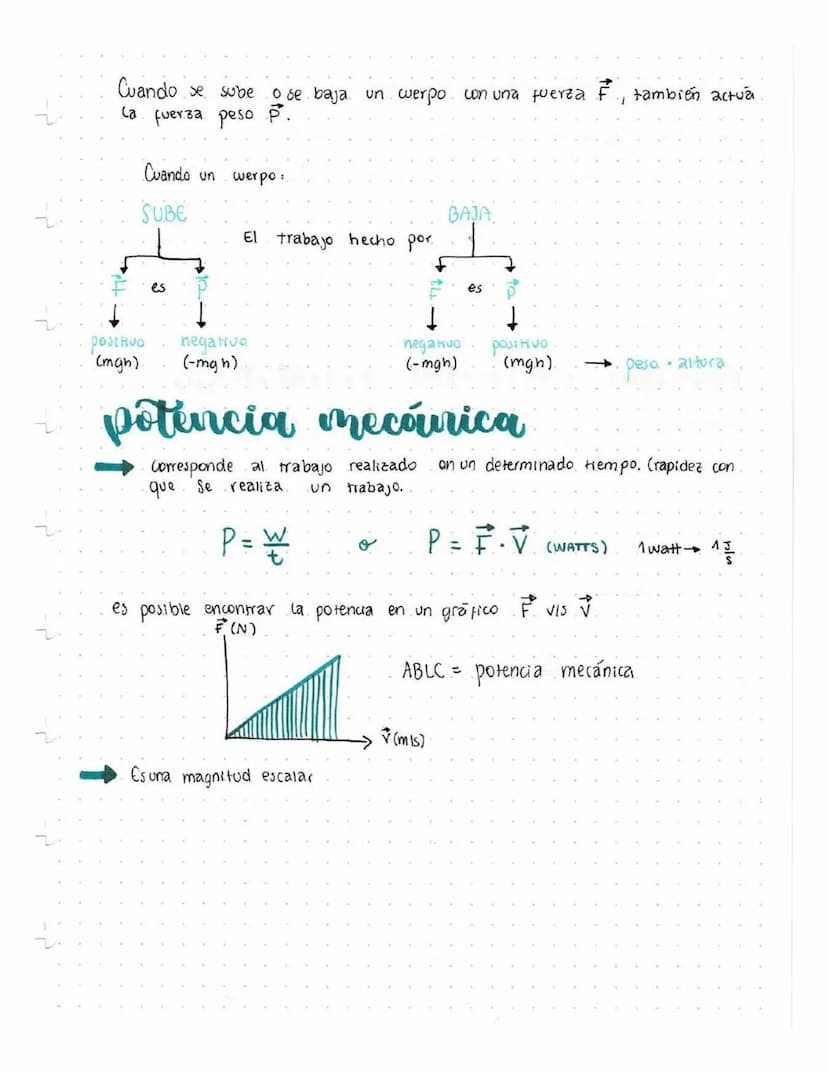 Cuando se sube o se baja un cuerpo con una fuerza F⃗, también actúa
la fuerza peso P⃗.
Cuando un cuerpo:
SUBE
BAJA
El trabajo hecho por
F⃗ es P⃗
F⃗ es P⃗
positivo negativo
negativo positivo
(mgh) (-mgh)
(-mgh) (mgh) → peso · altura
potencia mecánica
→ Corresponde al trabajo realizado en un determinado tiempo. (rapidez con
que se realiza un trabajo.
P = W/t o P = F⃗ · V⃗ (WATTS) 1 watt → 1 J/s
es posible encontrar la potencia en un gráfico F⃗ v/s V⃗
F⃗ (N)
ABLC = potencia mecánica
V⃗ (m/s)
→ Es una magnitud escalar